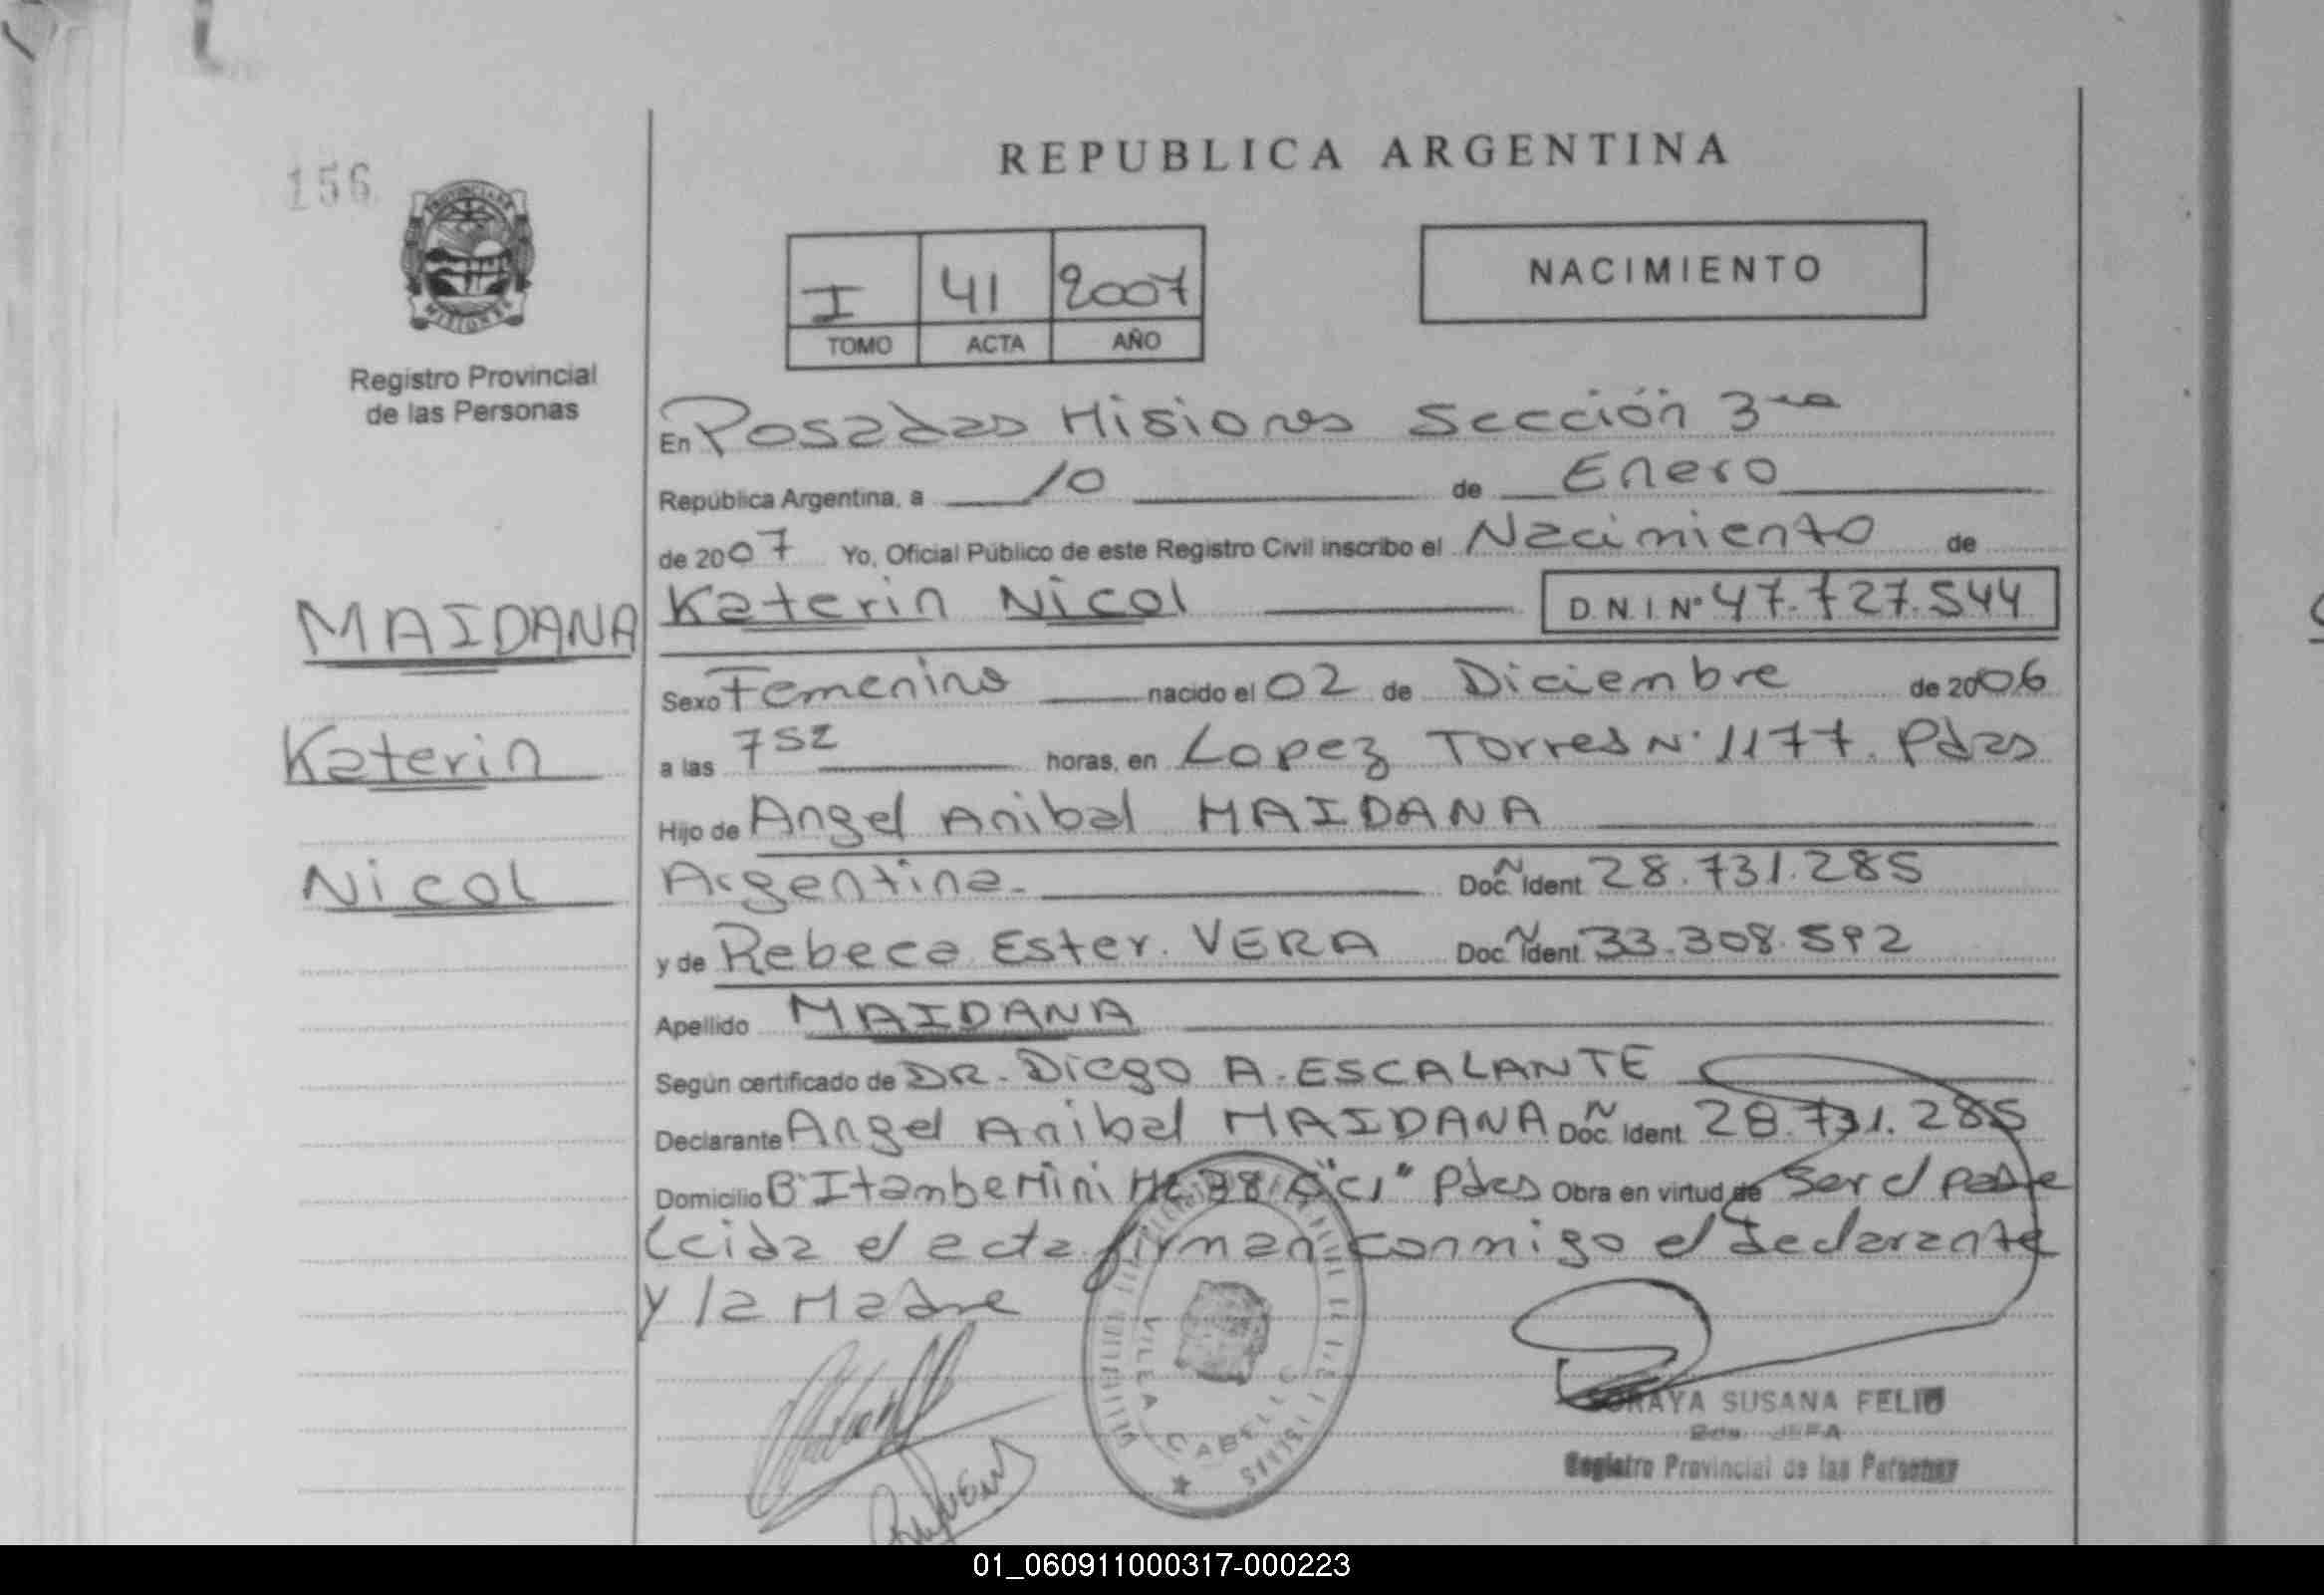 156
REPUBLICA ARGENTINA
PROVINCIA DE
MISIONES
I 41 2007
TOMO ACTA AÑO
NACIMIENTO
Registro Provincial
de las Personas
En Posadas Misiones Sección 3ra
República Argentina, a 10 de Enero
de 2007 Yo, Oficial Público de este Registro Civil inscribo el Nacimiento de
MAIDANA
Katerin Nicol D.N.I.Nº 47.727.544
Sexo Femenino nacido el 02 de Diciembre de 2006
Katerin
a las horas, en Lopez Torres Nº 1177. Pdas
Hijo de Angel Anibal MAIDANA
Nicol
Argentina Doc. Ident 28.731.285
y de Rebeca Ester VERA Doc. Ident 33.308.592
Apellido MAIDANA
Según certificado de DR. Diego A. ESCALANTE
Declarante Angel Anibal MAIDANA Doc. Ident 28.731.285
Domicilio Bº Itambe Mini "C1" Pdas Obra en virtud de Ser el Padre
Leida el acta firman conmigo el declarante
y la Madre
VILLA CABELLO
SORAYA SUSANA FELIU
JEFA
Registro Provincial de las Personas
01_060911000317-000223